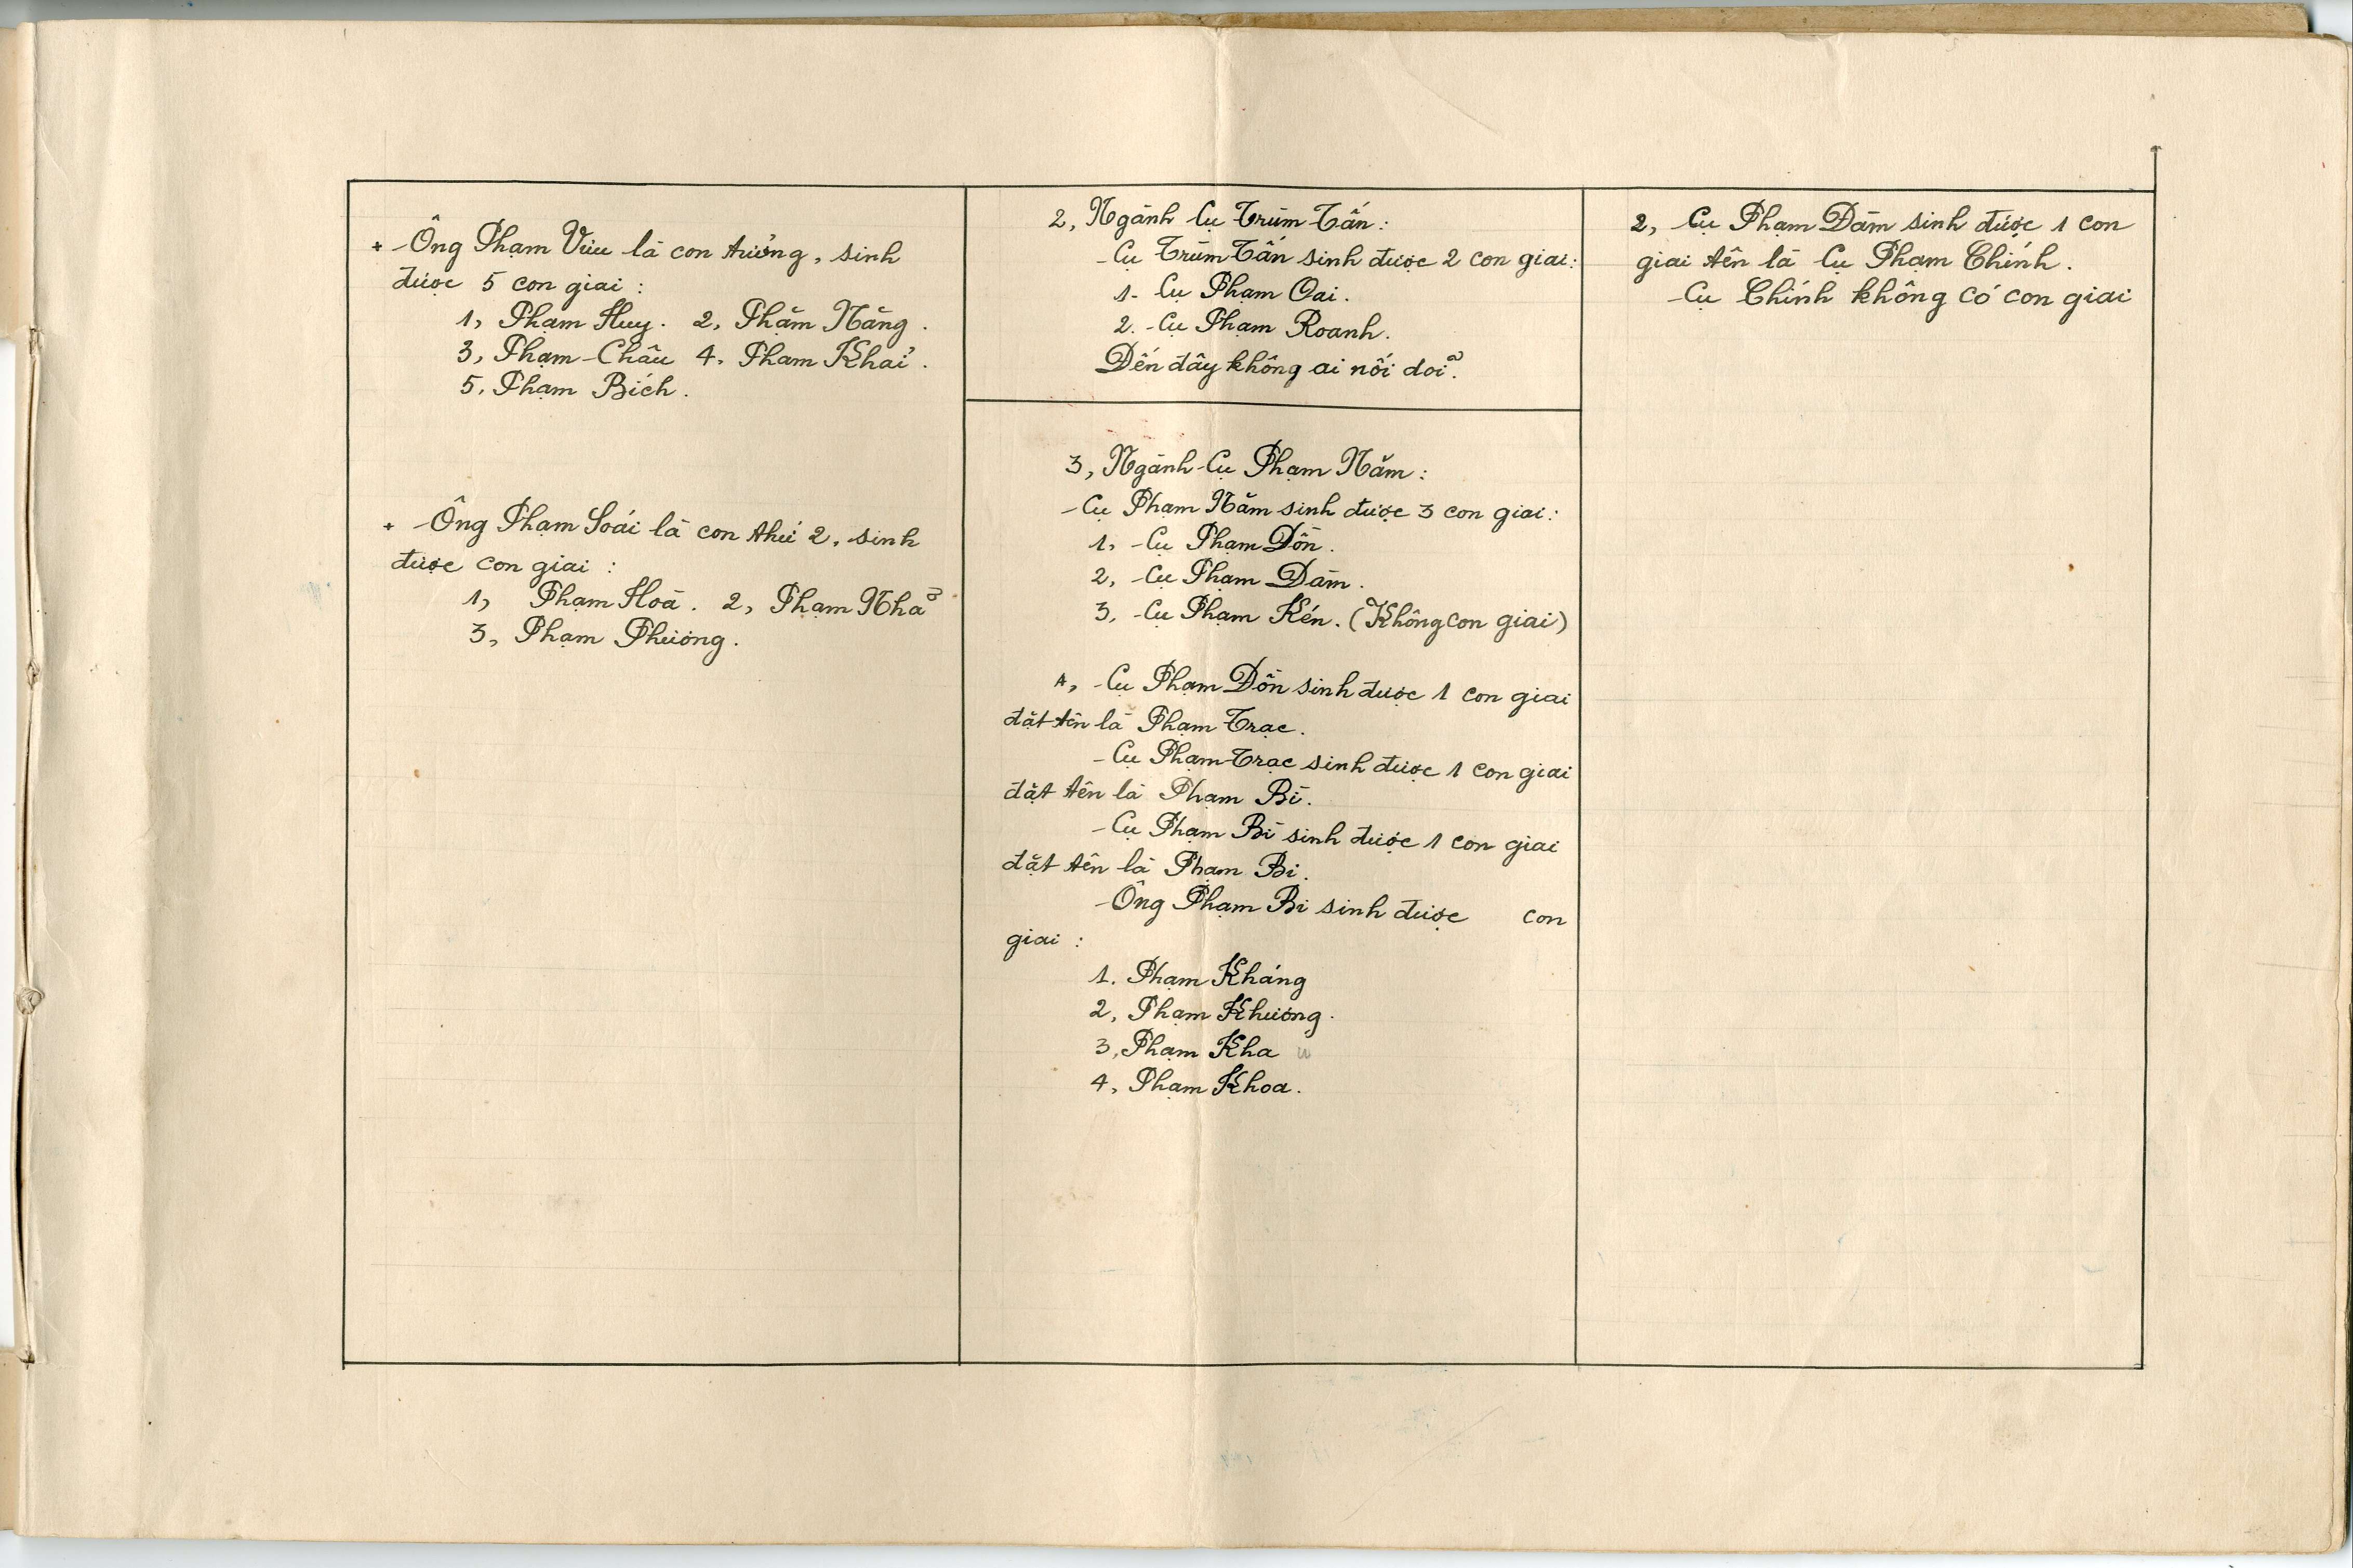 + Ông Phạm Vưu là con trưởng, sinh
được 5 con giai :
1, Phạm Huy. 2, Phạm Năng.
3, Phạm Châu 4, Phạm Khải.
5, Phạm Bích.
+ Ông Phạm Soái là con thứ 2, sinh
được con giai :
1, Phạm Hoà. 2, Phạm Nhã
3, Phạm Phương.
2, Ngành Cụ Trùm Tấn :
Cụ Trùm Tấn sinh được 2 con giai :
1- Cụ Phạm Oai.
2.- Cụ Phạm Roanh.
Đến đây không ai nối dõi.
3, Ngành Cụ Phạm Năm :
- Cụ Phạm Năm sinh được 3 con giai :
1, Cụ Phạm Đôn.
2, Cụ Phạm Đàm.
3, Cụ Phạm Kén. (Không con giai)
1, Cụ Phạm Đôn sinh được 1 con giai
đặt tên là Phạm Trạc.
- Cụ Phạm Trạc sinh được 1 con giai
đặt tên là Phạm Bì.
- Cụ Phạm Bì sinh được 1 con giai
đặt tên là Phạm Bi.
- Ông Phạm Bi sinh được con
giai :
1. Phạm Kháng
2, Phạm Khương.
3, Phạm Kha
4, Phạm Khoa.
2, Cụ Phạm Đàm sinh được 1 con
giai tên là Cụ Phạm Chính.
- Cụ Chính không có con giai